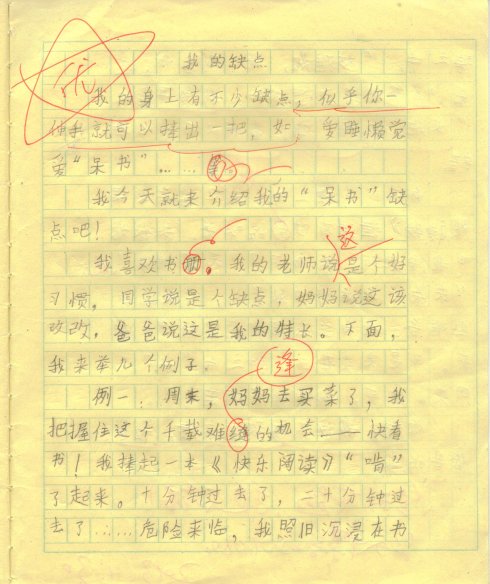 优
我的缺点
我的身上有不少缺点，似乎你一
伸手就可以捧出一把，如，爱睡懒觉
爱“呆书”……等。
我今天就来介绍我的“呆书”缺
点吧！
我喜欢书。我的老师说这是个好
习惯。同学说是个缺点，妈妈说这该
改改，爸爸说这是我的特长。下面，
我来举几个例子。
逢
例一，周末，妈妈去买菜了，我
把握住这个千载难缝的机会——快看
书！我捧起一本《快乐阅读》“啃”
了起来。十分钟过去了，二十分钟过
去了……危险来临，我照旧沉浸在书